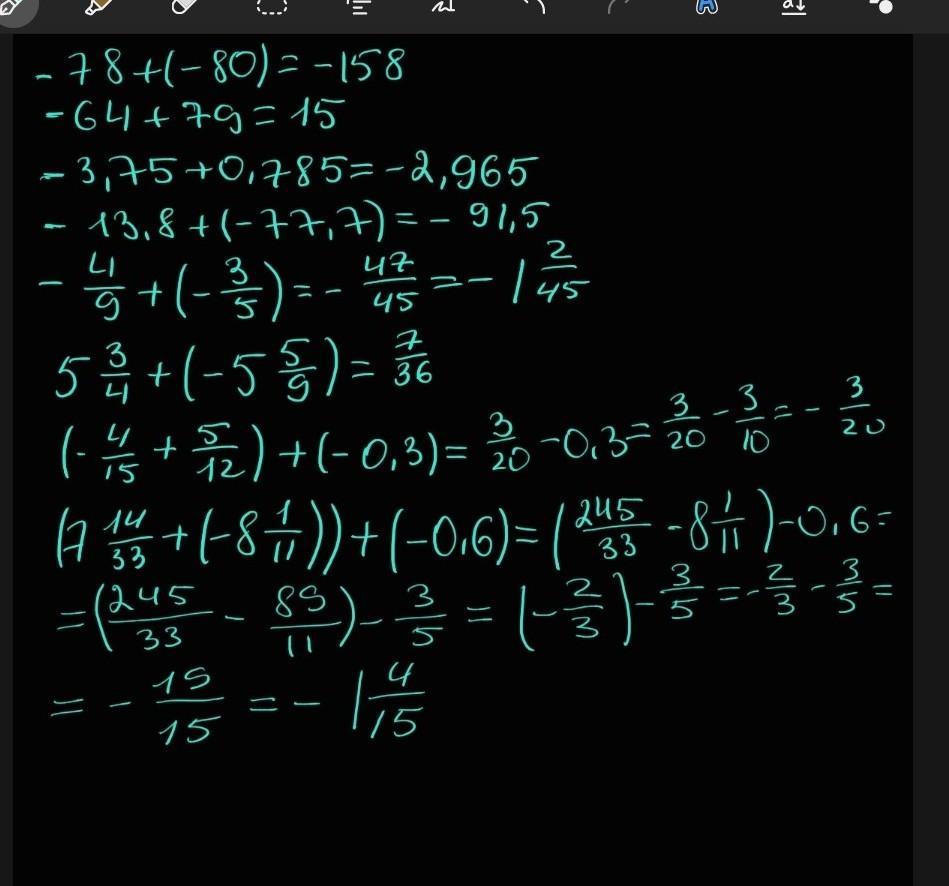 -78+(-80)=-158
-64+79=15
-3,75+0,785=-2,965
-13,8+(-77,7)=-91,5
-4/9+(-3/5)=-47/45=-1 2/45
5 3/4+(-5 5/9)=7/36
(-4/15+5/12)+(-0,3)=3/20-0,3=3/20-3/10=-3/20
(7 14/33+(-8 1/11))+(-0,6)=(245/33-8 1/11)-0,6=
=(245/33-89/11)-3/5=(-2/3)-3/5=-2/3-3/5=
=-19/15=-1 4/15